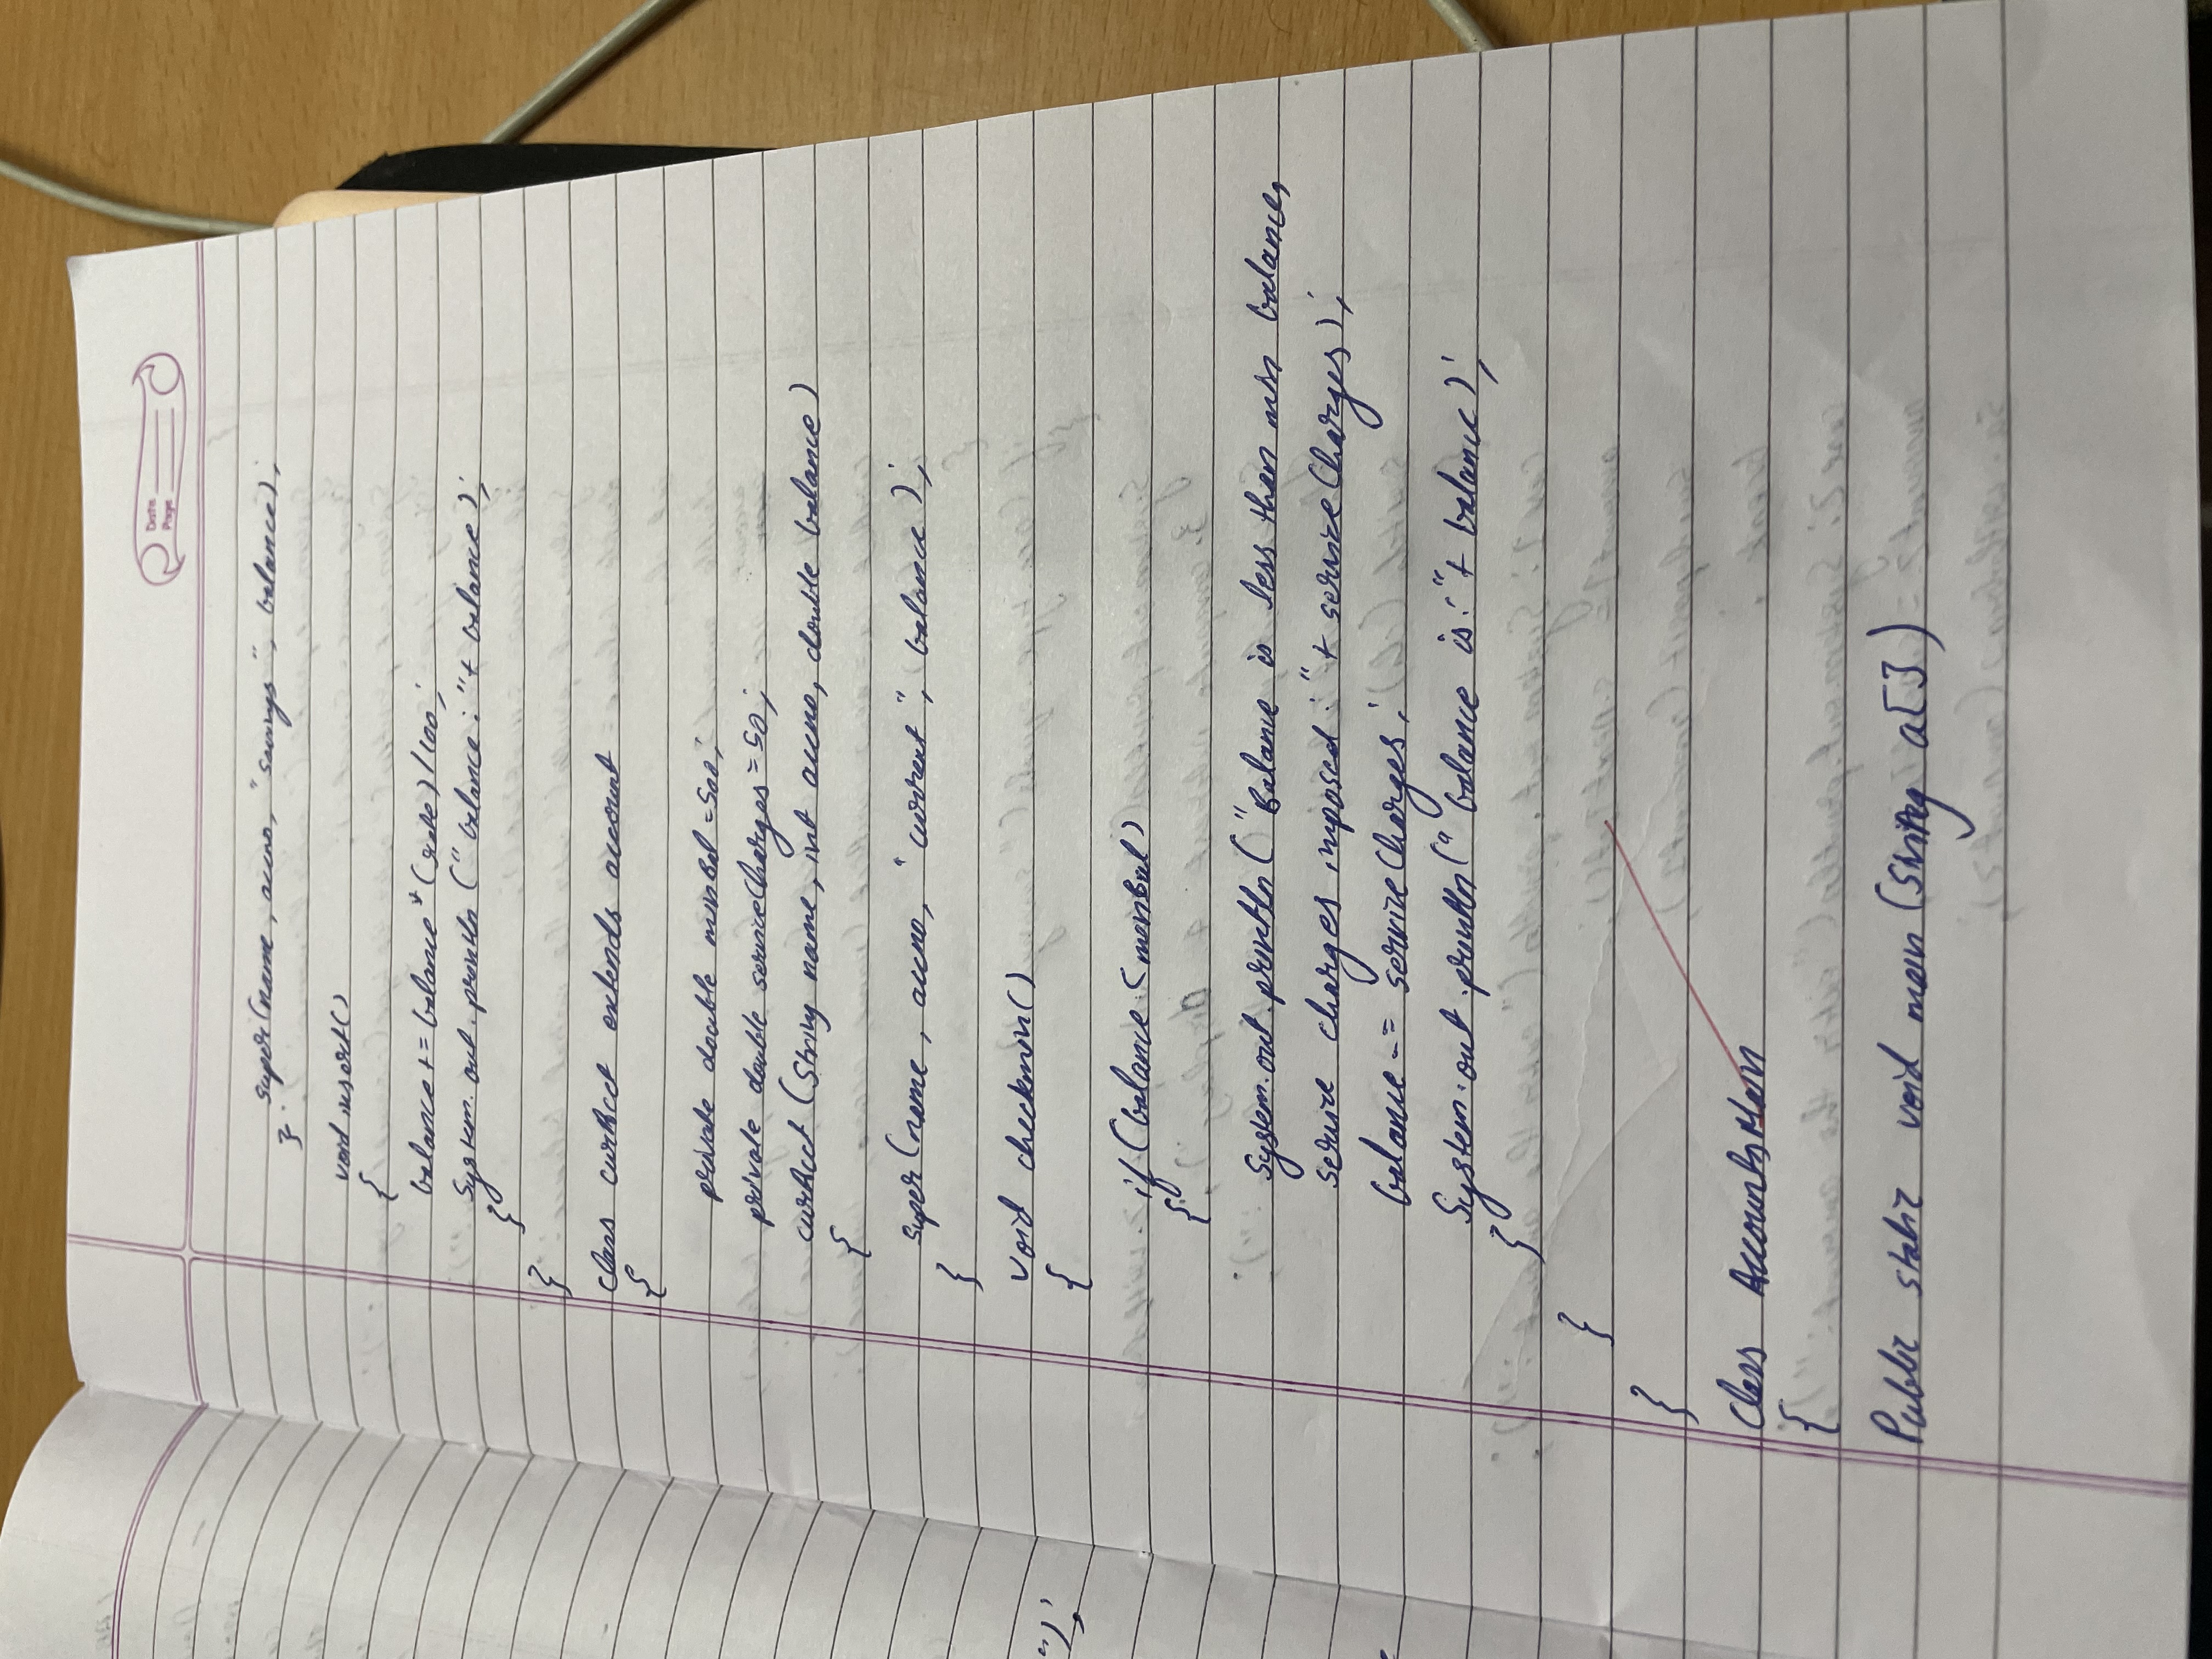 Date
Page
super(name, accno, "savings", balance);
}
void insert()
{
balance += balance*(rate)/100;
System.out.println("balance:"+balance);
}
}
class curAcct extends account
{
private double minBal=500;
private double serviceCharges=50;
curAcct (String name, int accno, double balance)
{
super(name, accno, "current", balance);
}
void checkmin()
{
if (balance<minBal)
{
System.out.println("Balance is less than min balance,
service charges imposed:"+ serviceCharges);
balance-= serviceCharges;
System.out.println("balance is:"+ balance);
}
}
}
class AccountsMain
{
Public static void main(String a[])
");